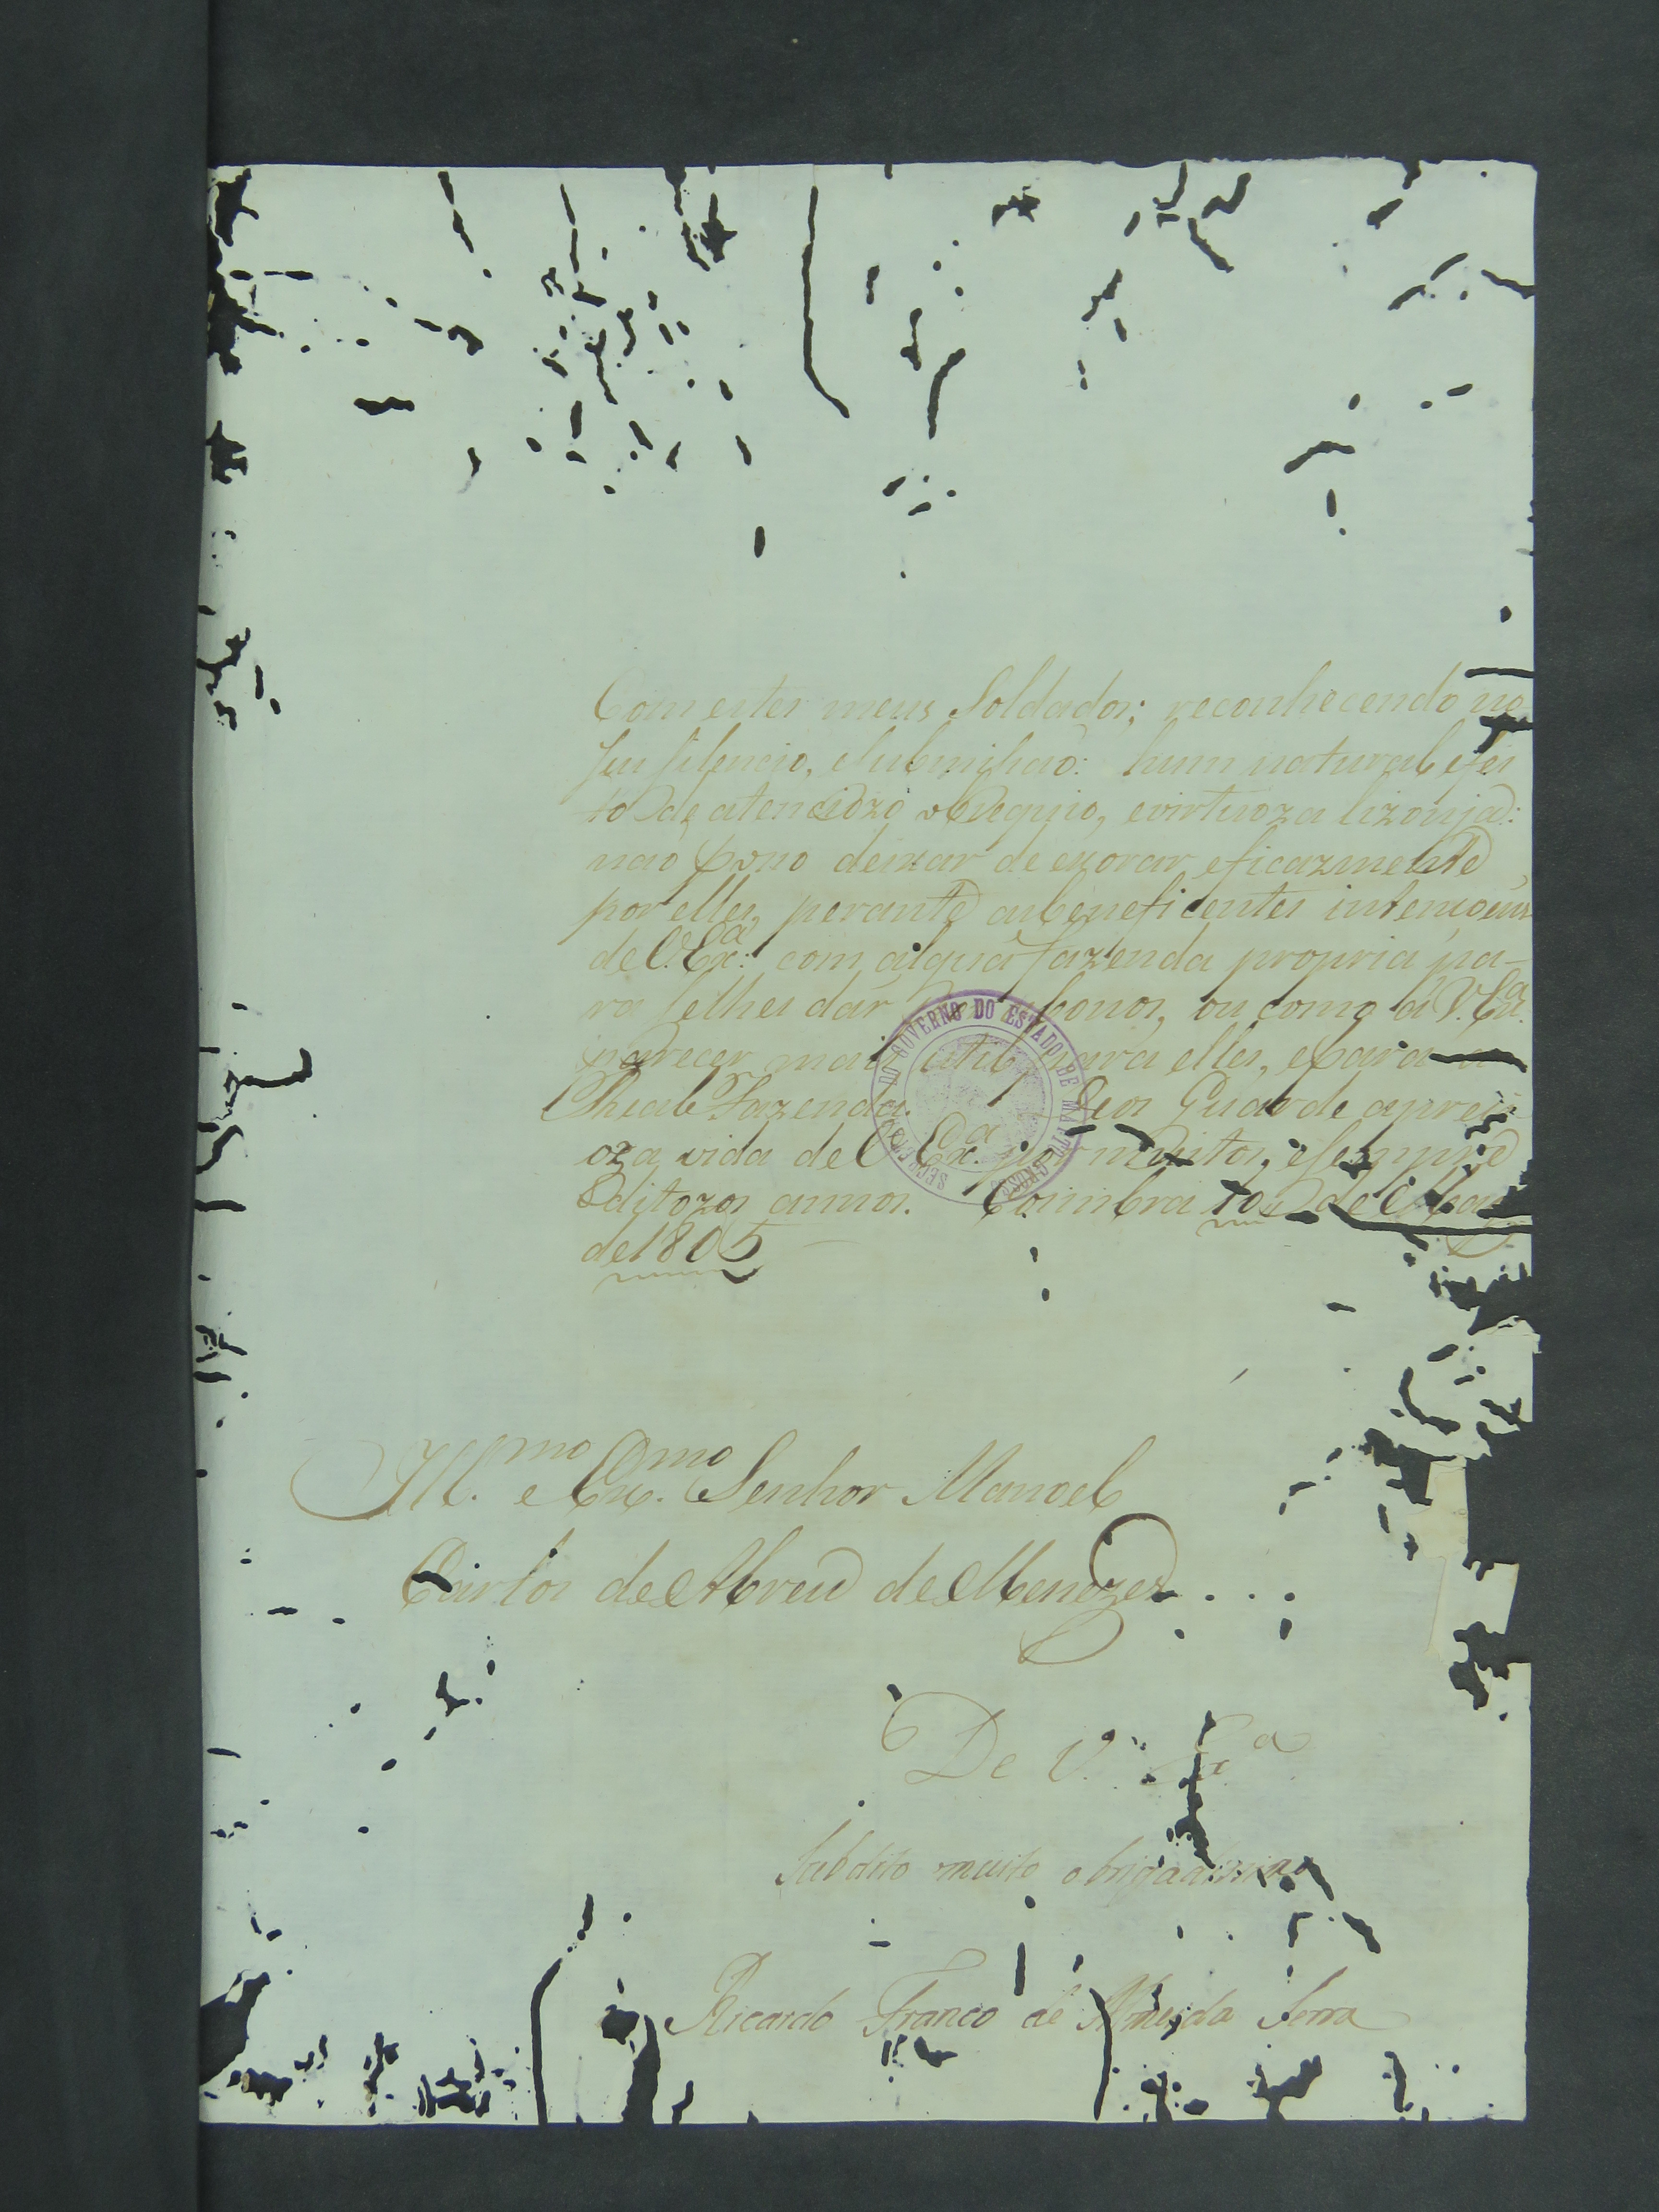 Com estes meus Soldados; reconhecendo no
seu silencio, e submissaõ: hum natural efei
to de atenciozo obsequio, e virtuoza lizonja:
naõ posso deixar de exorar eficazmente
por elles, perante as beneficentes intençoens
de V. Exª. com algua fazenda propria pa-
ra se lhes dár bonos, ou como á V. Exª.
parecer mais util para elles, e para a
Real Fazenda. Deos Guarde a preci
oza vida de V. Exª. por muitos, e sempre
Ditozos annos. Coimbra 10 de
de 1805
Ill.mo e Ex.mo Senhor Manoel
Carlos de Abreu de Menezes
De V. Exª
Subdito muito obrigadissimo
Ricardo Franco de Almeida Serra
SECRETARIA DO GOVERNO DO ESTADO DE MATTO-GROSSO